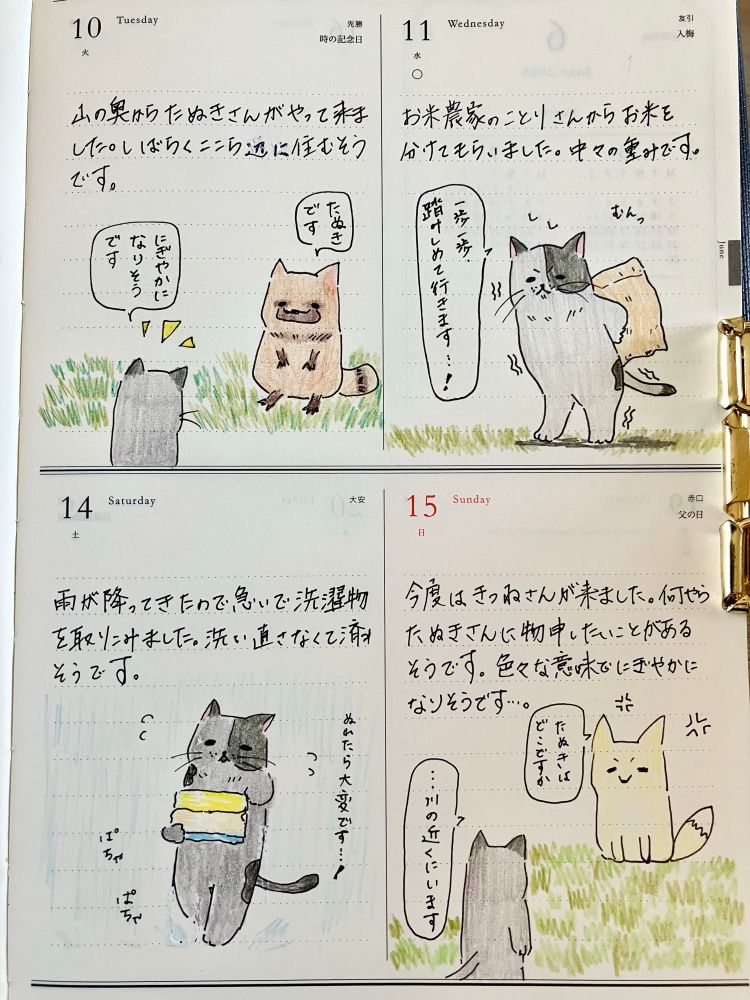 10
Tuesday
先勝
火
時の記念日
山の奥からたぬきさんがやって来ま
した。しばらくここら辺に住むそう
です。
たぬき
です
にぎやかに
なりそう
です
11
Wednesday
友引
水
入梅
○
お米農家のことりさんからお米を
分けてもらいました。中々の重みです。
むんっ
一歩一歩、
踏みしめて行きます…!
June
14
Saturday
大安
土
雨が降ってきたので急いで洗濯物
を取りこみました。洗い直さなくて済み
そうです。
ぬれたら大変です…!
ぱちゃ
ぱちゃ
15
Sunday
赤口
日
父の日
今度はきつねさんが来ました。何やら
たぬきさんに物申したいことがある
そうです。色々な意味でにぎやかに
なりそうです…。
たぬきは
どこですか
…川の近くにいます